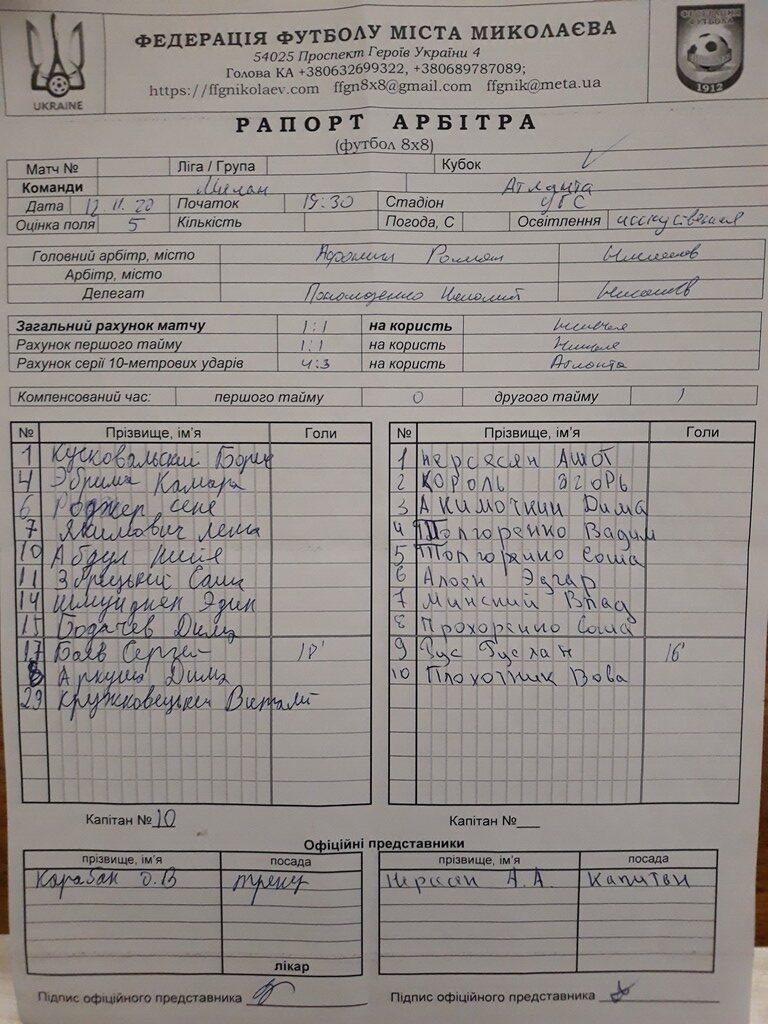 UKRAINE
ФЕДЕРАЦІЯ ФУТБОЛУ МІСТА МИКОЛАЄВА
54025 Проспект Героїв України 4
Голова КА +380632699322, +380689787089;
https://ffgnikolaev.com ffgn8x8@gmail.com ffgnik@meta.ua
ФЕДЕРАЦІЯ ФУТБОЛУ
1912
РАПОРТ АРБІТРА
(футбол 8x8)
Матч № Ліга / Група Кубок
Команди Милан Атланта
Дата 12.11.20 Початок 19:30 Стадіон УГС
Оцінка поля 5 Кількість Погода, С Освітлення
Головний арбітр, місто Роман Николаев
Арбітр, місто
Делегат Николаев
Загальний рахунок матчу 1:1 на користь Ничья
Рахунок першого тайму 1:1 на користь Ничья
Рахунок серії 10-метрових ударів 4:3 на користь Атланта
Компенсований час: першого тайму 0 другого тайму 1
№ Прізвище, ім'я Голи
1 Кусковальский
4 Эбрима Камара
6 Роджер сене
7 Якимович Леша
10 Абдул
11 Збрецький Саша
14 Эдик
15 Бодачев Дима
17 Баев Сергей
8 Аркуша Дима
29 Кружковецький Виталий
№ Прізвище, ім'я Голи
1 Нерсесян Ашот
2 Король Згорь
3 Акимочкин Дима
4 Топгоренко Вадим
5 Топгоренко Саша
6 Алоен Эдгар
7 Минский Влад
8 Прохоренко Саша
9 Рус Руслан 16'
10 Плохотник Вова
Капітан № 10
Капітан №
Офіційні представники
прізвище, ім'я посада
Карабан О.В
лікар
прізвище, ім'я посада
А.А. Капитан
Підпис офіційного представника
Підпис офіційного представника